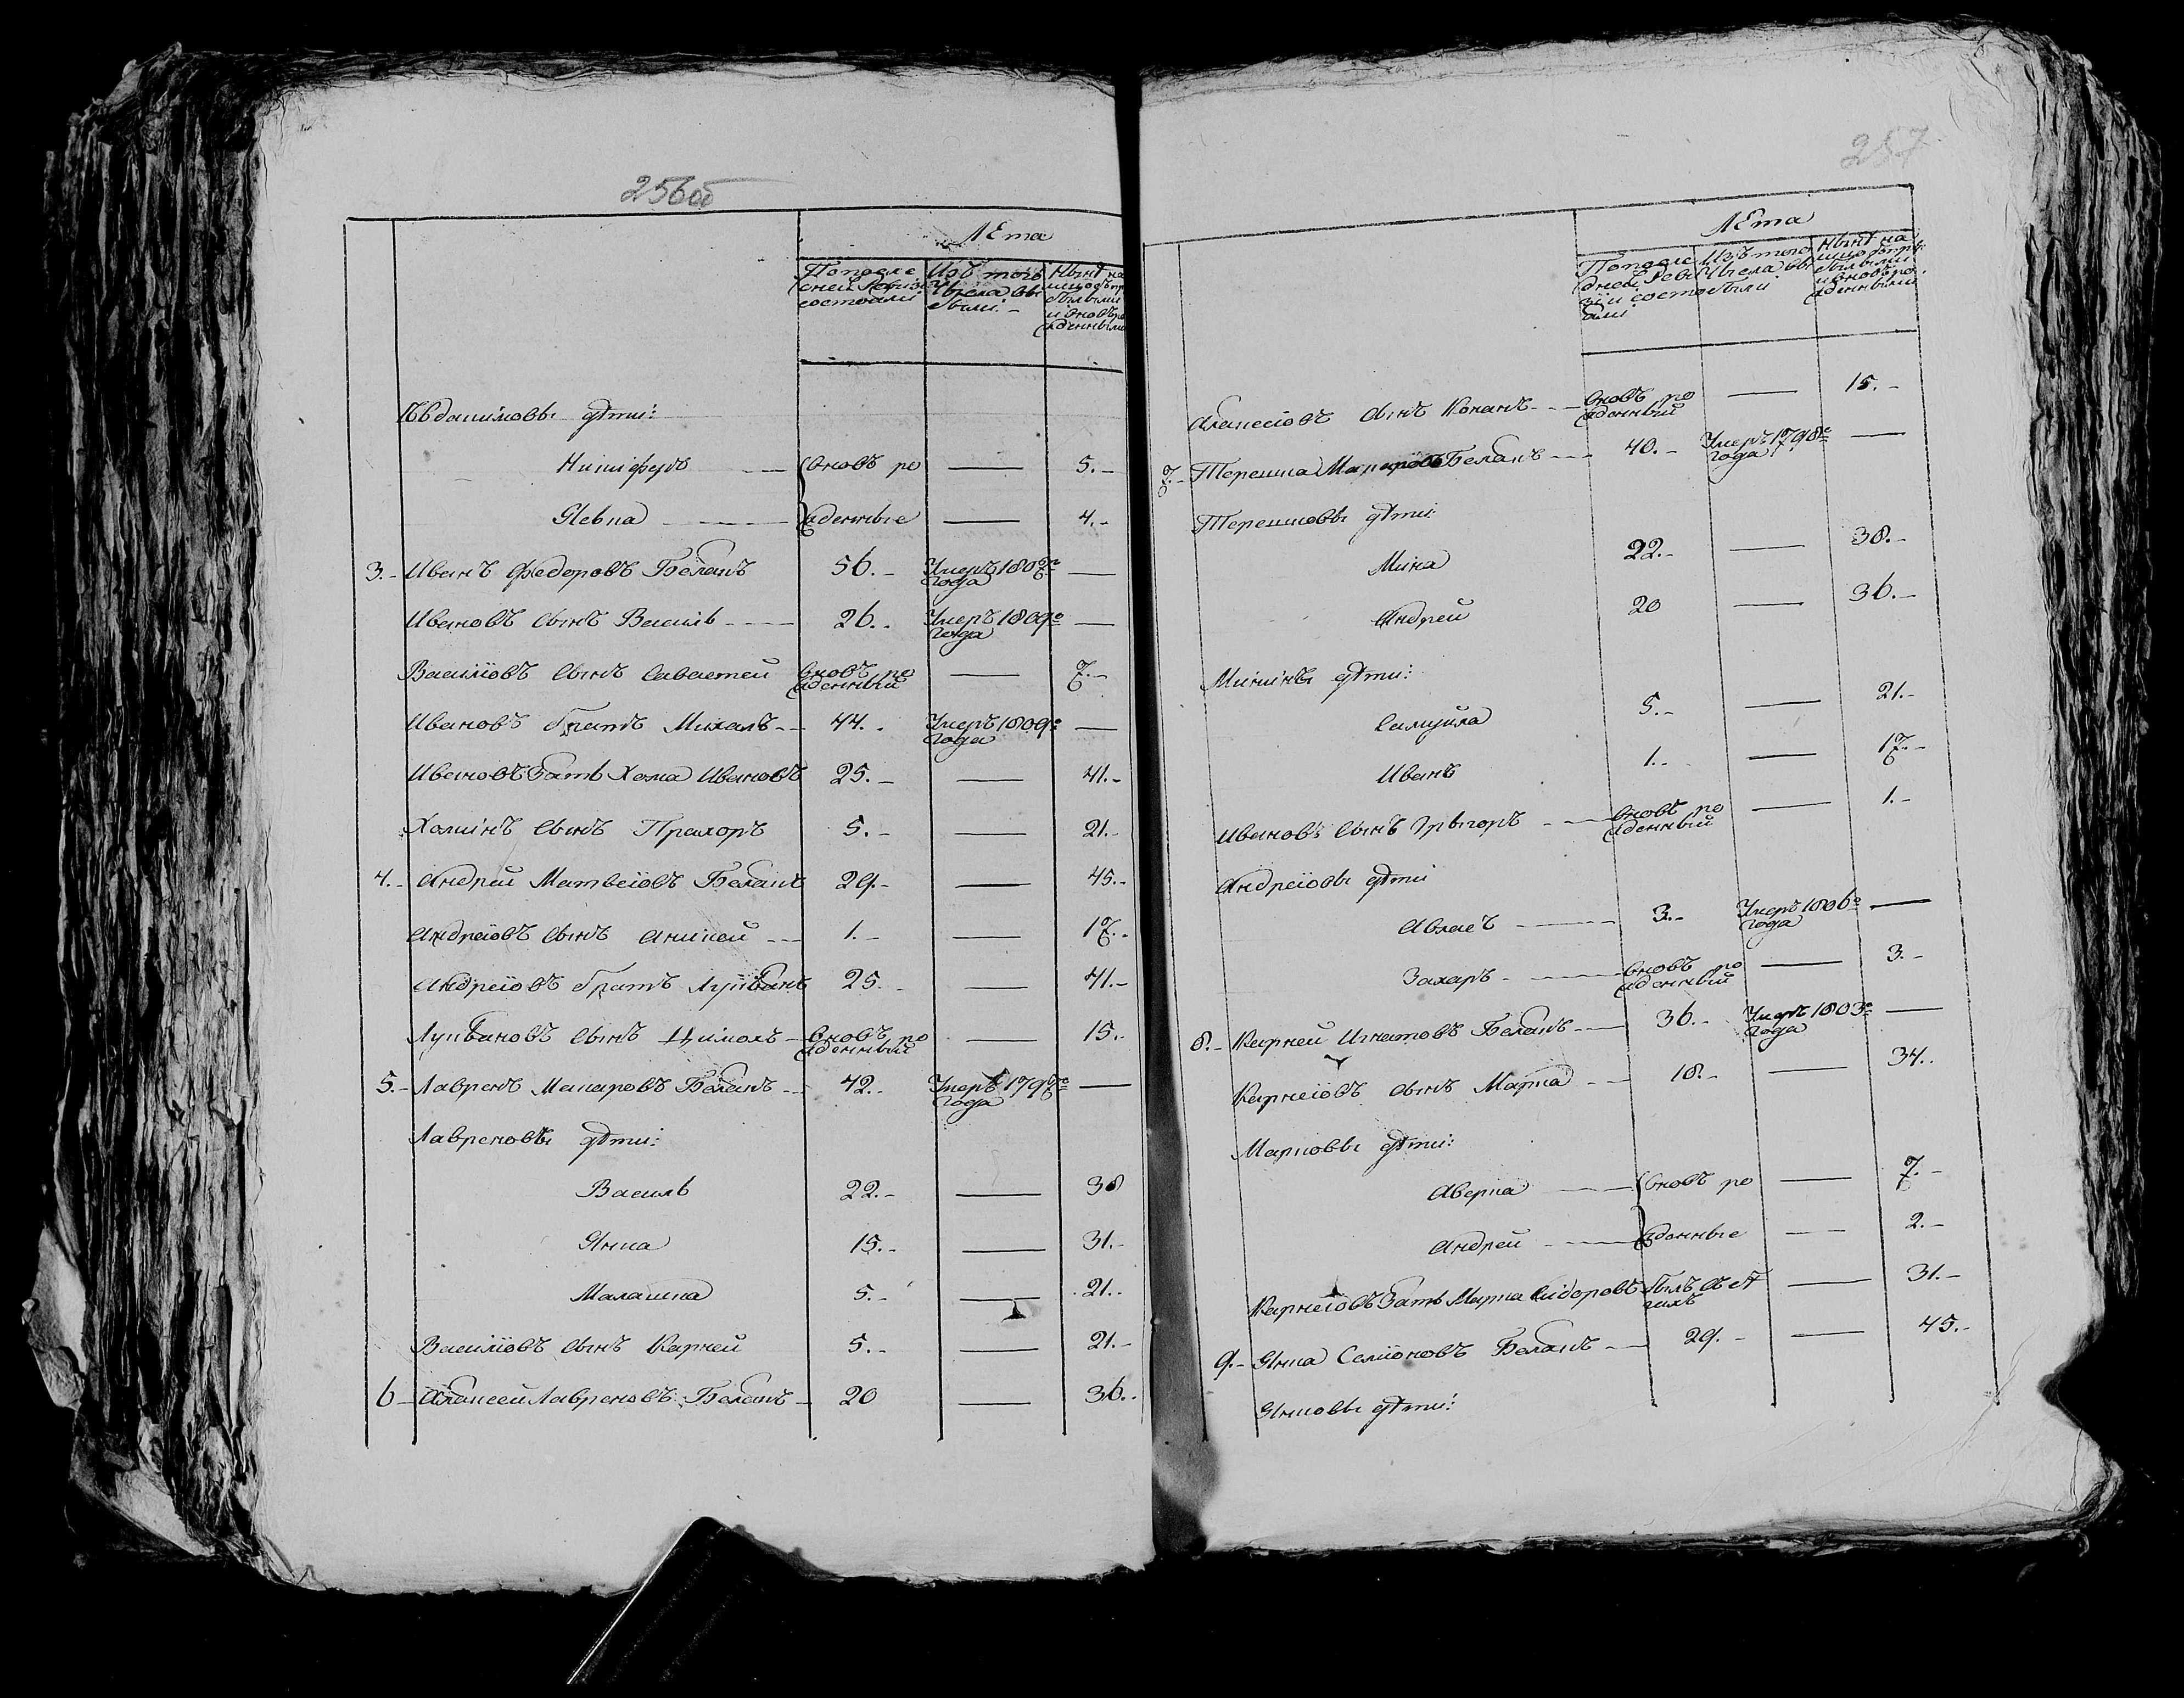 256об
Лѣта
Попосле
дней Ревизіи
состояли
Изъ того
числа вы
были
Нынѣ на
лицо съ пр
былыми
и вновь ро
жденными
Евдокимовы дѣти:
Никифуръ вновь ро — 5.
Левка жденные — 4.
3. Иванъ Федоровъ Белашъ 56. Умеръ 1807го года —
Ивановъ сынъ Василь 26. Умеръ 1809го года —
Василіовъ сынъ Саваетей вновь ро жденный — 7.
Ивановъ братъ Михалъ 44. Умеръ 1809го года —
Ивановъ зать Хома Ивановъ 25. — 41.
Хоминъ сынъ Прахоръ 5. — 21.
4. Андрей Матвеіовъ Белашъ 29. — 45.
Андреіовъ сынъ Аникей 1. — 17.
Андреіовъ братъ Лукьянъ 25. — 41.
Лукьяновъ сынъ вновь ро жденный — 15.
5. Лавренъ Макаровъ Белашъ 42. Умеръ 1797го года —
Лавреновы дѣти:
Василь 22. — 38
Янка 15. — 31.
Малашка 5. — 21.
Василіовъ сынъ Карней 5. — 21.
6 Алексей Лавреновъ Белашъ 20 — 36.
257
Лѣта
Попосле
дней Реви
зіи состо
яли
Изъ того
числа вы
были
Нынѣ на
лицо съ при
былыми
и вновь ро
жденными
Алексеіовъ сынъ Конанъ вновь ро жденный — 15.
7. Терешка Макаровъ Белашъ 40. Умеръ 1798го года —
Терешковы дѣти:
Мина 22. — 38.
Андрей 20 — 36.
Минины дѣти:
Самуйла 5. — 21.
Иванъ 1. — 17.
Ивановъ сынъ Грыгоръ вновь ро жденный — 1.
Андреіовы дѣти
Авласъ 3. Умеръ 1806го года —
Захаръ вновь ро жденный — 3.
8. Карней Игнатовъ Белашъ 36. Умеръ 1803го года —
Карнеіовъ сынъ Марка 18. — 34.
Марковы дѣти:
Аверка вновь ро — 7.
Андрей жденные — 2.
Карнеіовъ зать Марка Сидоровъ былъ въ бѣ гахъ — 31.
9. Янка Семіоновъ Белашъ 29. — 45.
Янковы дѣти: